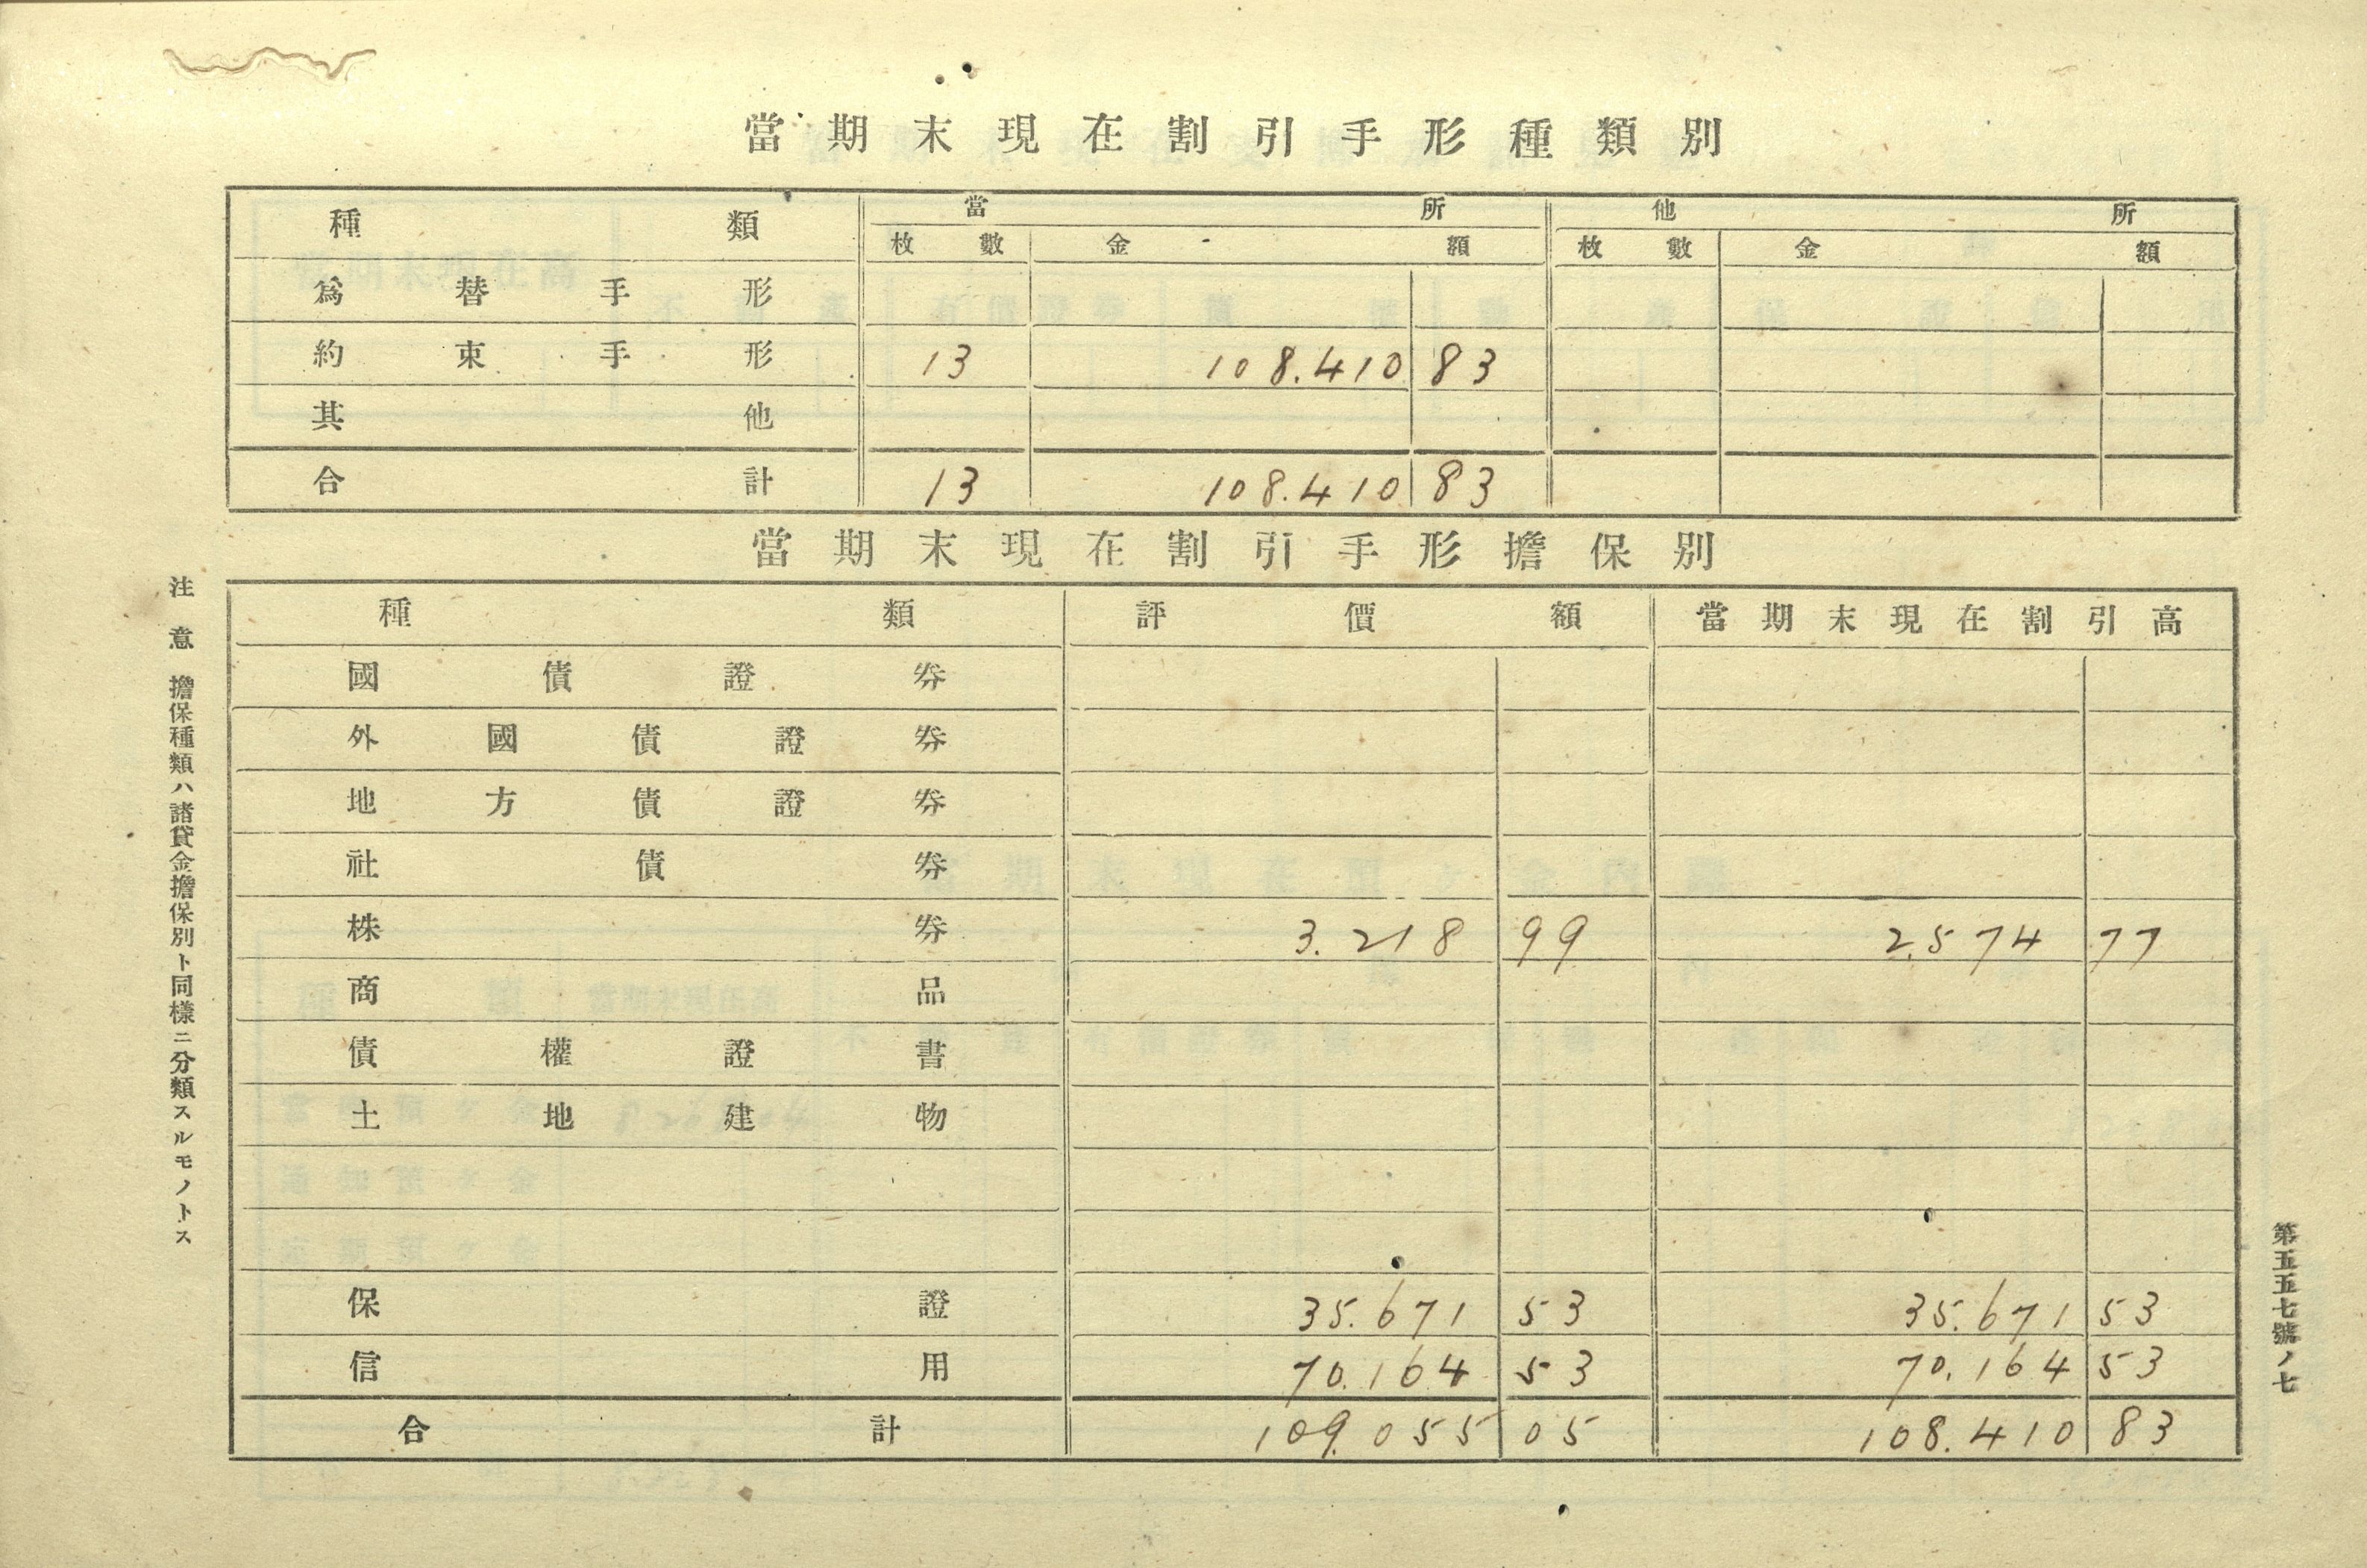 當期末現在割引手形種類別
種類 當所 他所
枚數 金額 枚數 金額
爲替手形
約束手形 13 108.410 83
其他
合計 13 108.410 83
當期末現在割引手形擔保別
種類 評價額 當期末現在割引高
國債證券
外國債證券
地方債證券
社債券
株券 3.218 99 2.574 77
商品
債權證書
土地建物
保證 35.671 53 35.671 53
信用 70.164 53 70.164 53
合計 109.055 05 108.410 83
注意 擔保種類ハ諸貸金擔保別ト同樣ニ分類スルモノトス
第五五七號ノ七